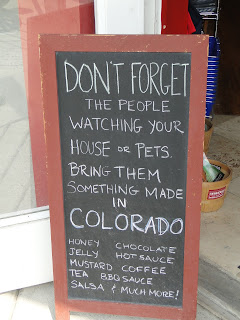 DON'T FORGET
THE PEOPLE
WATCHING YOUR
HOUSE OR PETS.
BRING THEM
SOMETHING MADE
IN
COLORADO
HONEY CHOCOLATE
JELLY HOT SAUCE
MUSTARD COFFEE
TEA BBQ SAUCE
SALSA & MUCH MORE!